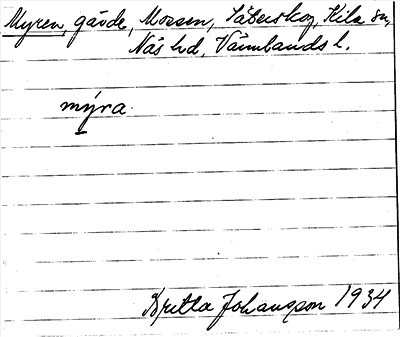 Myren, gärde, Mossen, Säterskog, Kila sn,
Näs hd, Värmlands l.
mýra.
Britta Johansson 1934